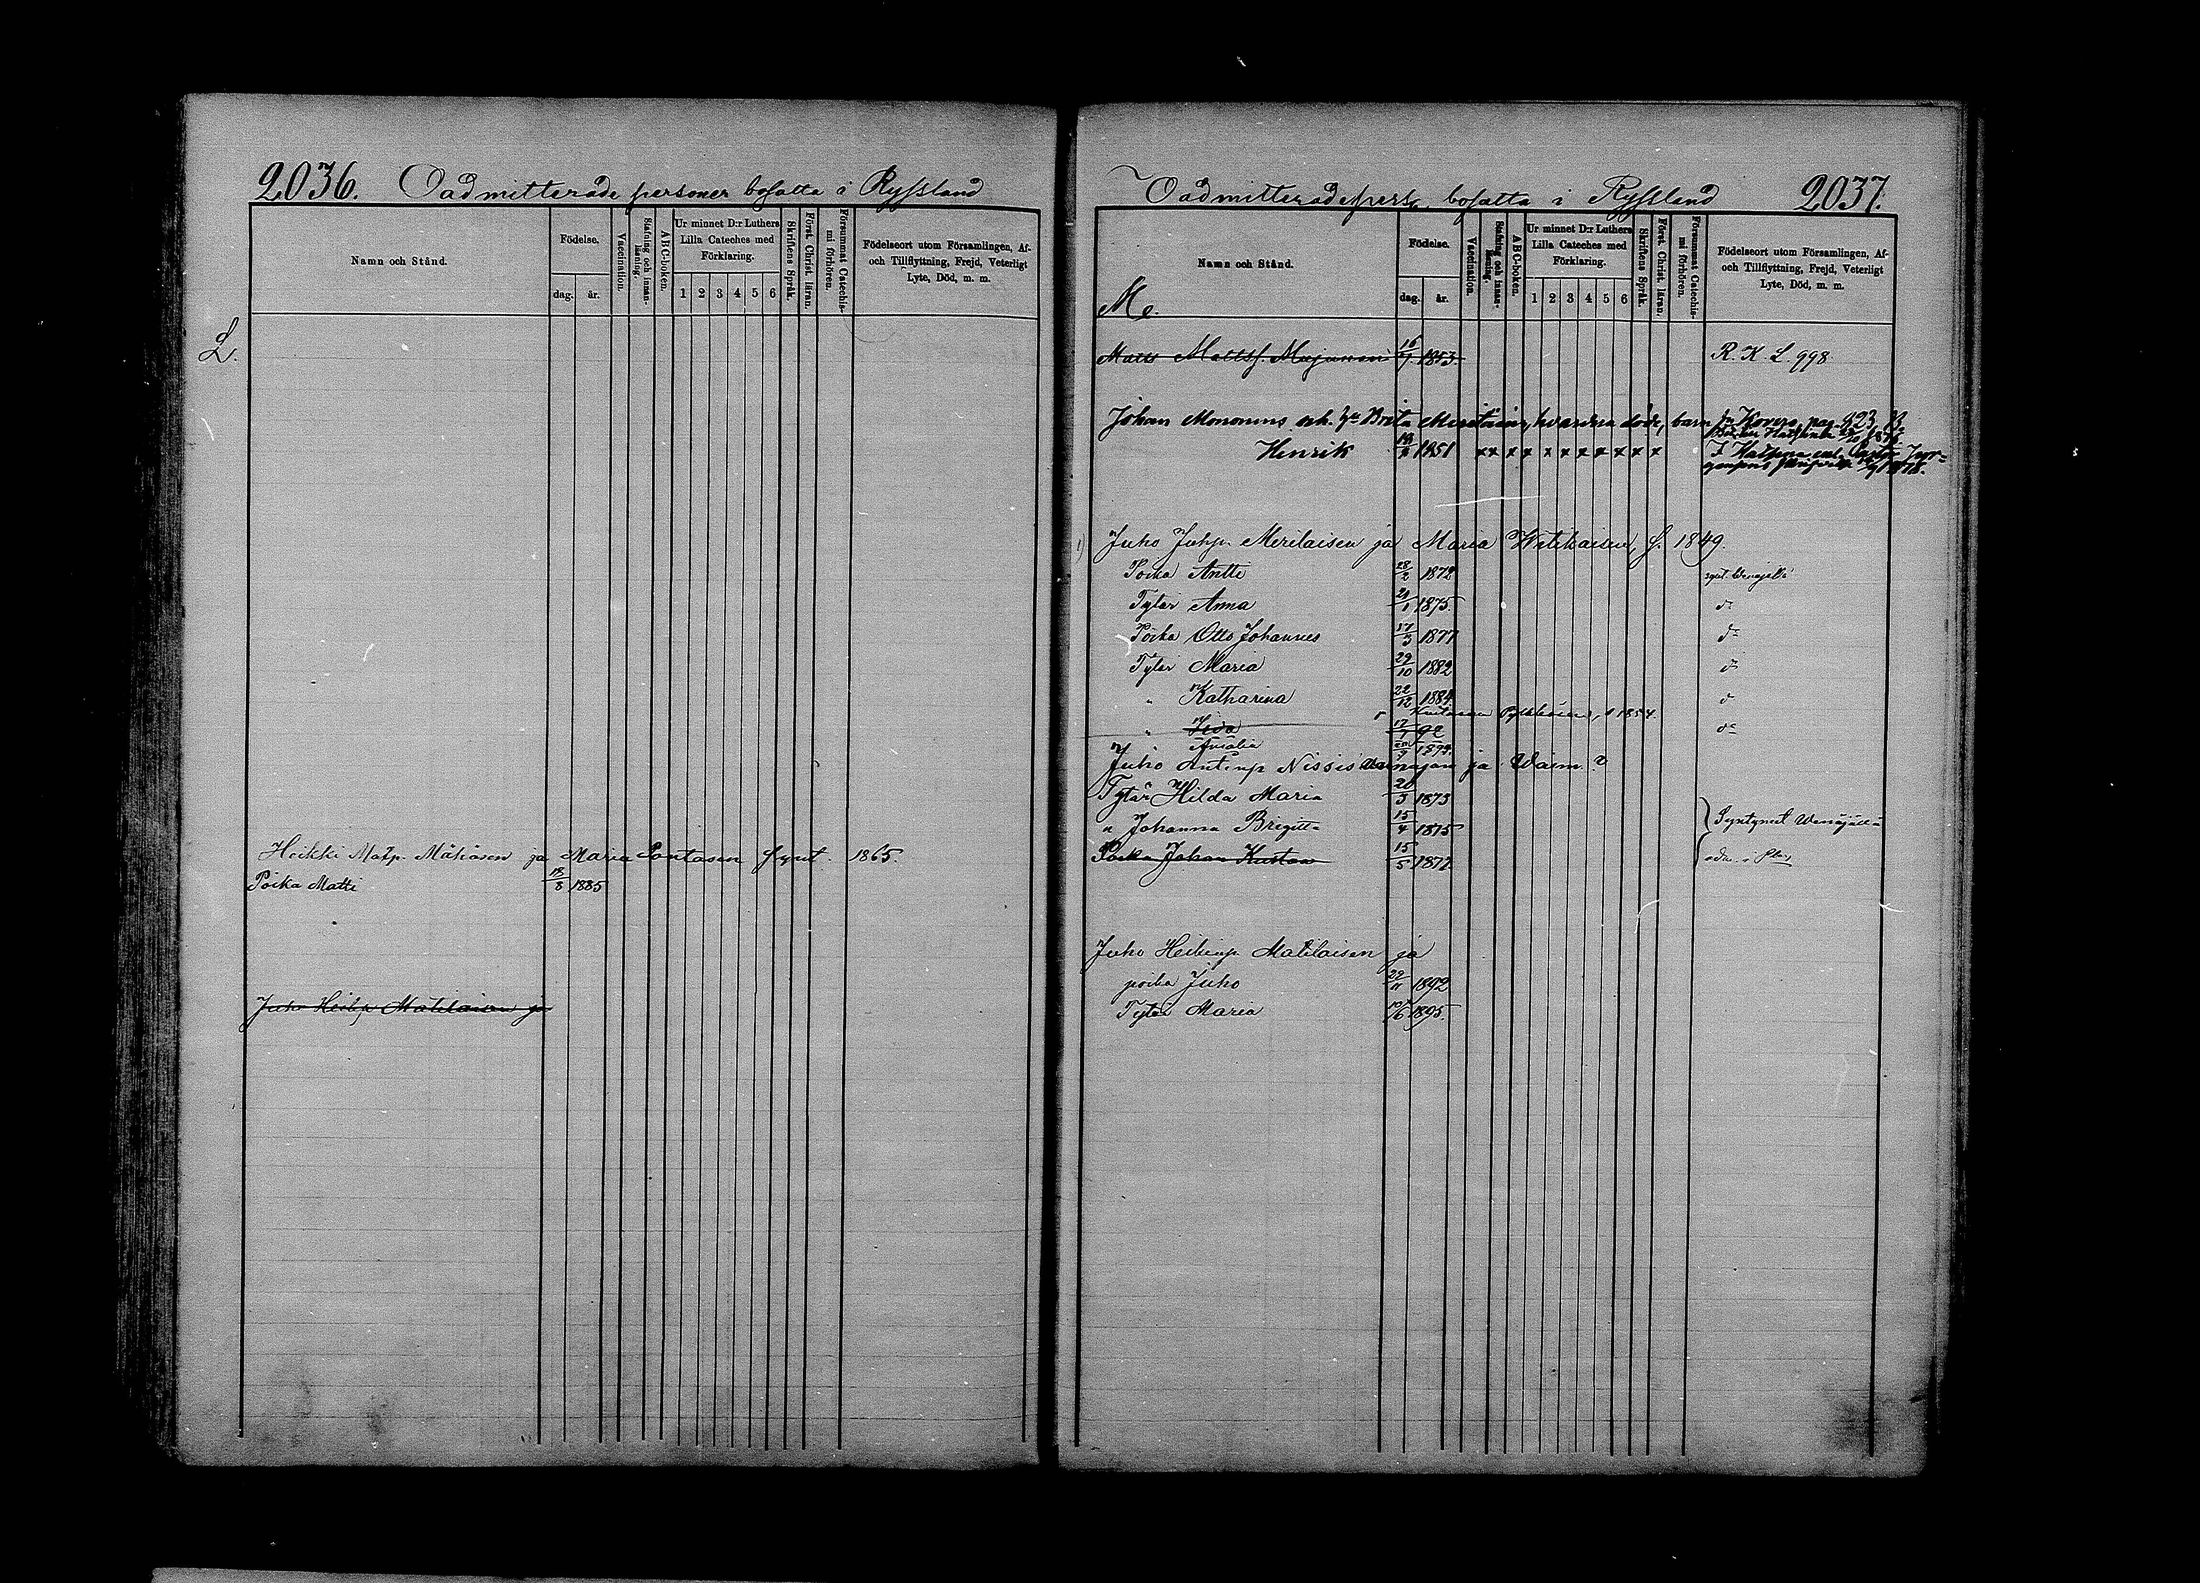 2036. Oadmitterade personer bosatta i Ryssland
Namn och Stånd.
Födelse.
dag. år.
Vaccination.
Stafning och innan-läsning.
ABC-boken.
Ur minnet D:r Luthers
Lilla Cateches med
Förklaring.
1 2 3 4 5 6
Skriftens Språk.
Först. Christ. läran.
Försummat Catechis-mi förhören.
Födelseort utom Församlingen, Af-
och Tillflyttning, Frejd, Veterligt
Lyte, Död, m. m.
L.
Heikki Matp. Mähösen ja Maria Pontasen synt. 1865.
Poika Matti 18/8 1885
Juho Heikp Matilaisen ja
Oadmitterade pers. bosatta i Ryssland 2037.
Namn och Stånd.
Födelse.
dag. år.
Vaccination.
Stafning och innan-läsning.
ABC-boken.
Ur minnet D:r Luthers
Lilla Cateches med
Förklaring.
1 2 3 4 5 6
Skriftens Språk.
Först. Christ. läran.
Försummat Catechis-mi förhören.
Födelseort utom Församlingen, Af-
och Tillflyttning, Frejd, Veterligt
Lyte, Död, m. m.
M.
Matts Mattss. 1853. R. K. L. 998
Johan Mononens och h:u Brita hvardera döde, barn
Henrik 1851 x x x x x x x x x x x
1878.
Juho Juhp. Merilaisen ja Maria f. 1849.
Poika Antti 28/2 1872 synt. Wenäjällä
Tytär Anna 21/1 1875 d:o
Poika Otto Johannes 17/3 1877 d:o
Tytär Maria 29/10 1882 d:o
" Katharina 22/12 1884 d:o
1854.
" 17/1 92 d:o
Amalia
Juho Antinp Nissisen ja Waim. ?
Tytär Hilda Maria 20/3 1873
" Johanna Brigitta 15/4 1875 Syntyneet Wenäjällä
Poika Johan Kustaa 15/5 1877
Juho Heikinp. Matilaisen ja
poika Juho 22/11 1892
Tytär Maria 10/6 1895.